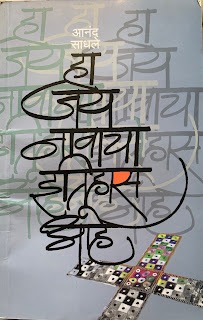 आनंद
साधले
हा
जय
नावाचा
इतिहास
आहे